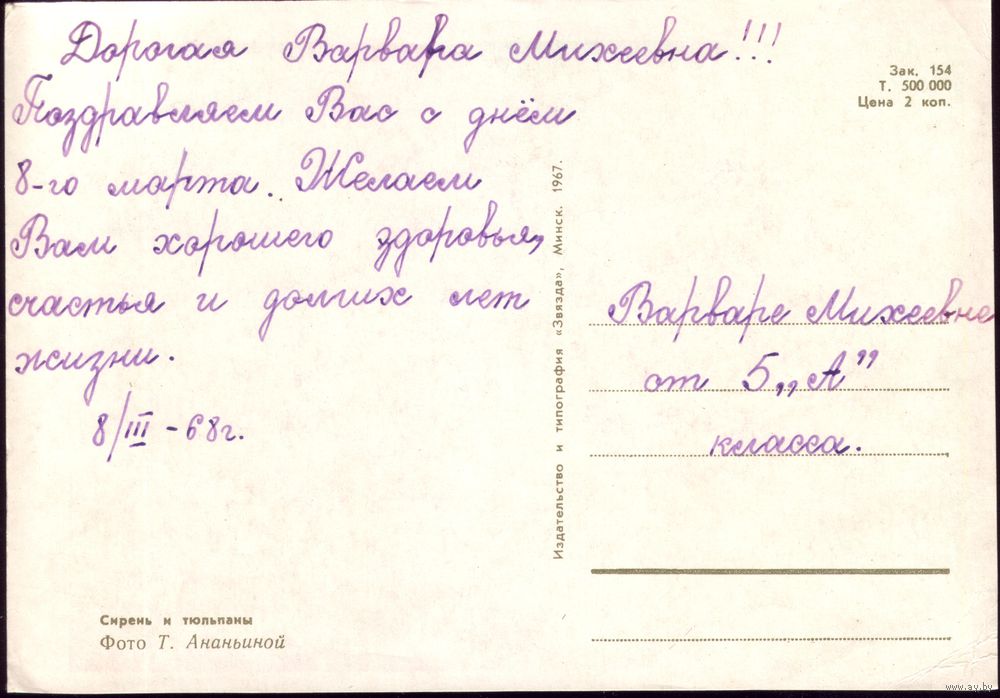 Дорогая Варвара Михеевна!!!
Поздравляем Вас с днём
8-го марта. Желаем
Вам хорошего здоровья,
счастья и долгих лет
жизни.
8/III - 68г.
Сирень и тюльпаны
Фото Т. Ананьиной
Издательство и типография «Звязда», Минск. 1967.
Зак. 154
Т. 500 000
Цена 2 коп.
Варваре Михеевне
от 5 „А”
класса.
www.ay.by